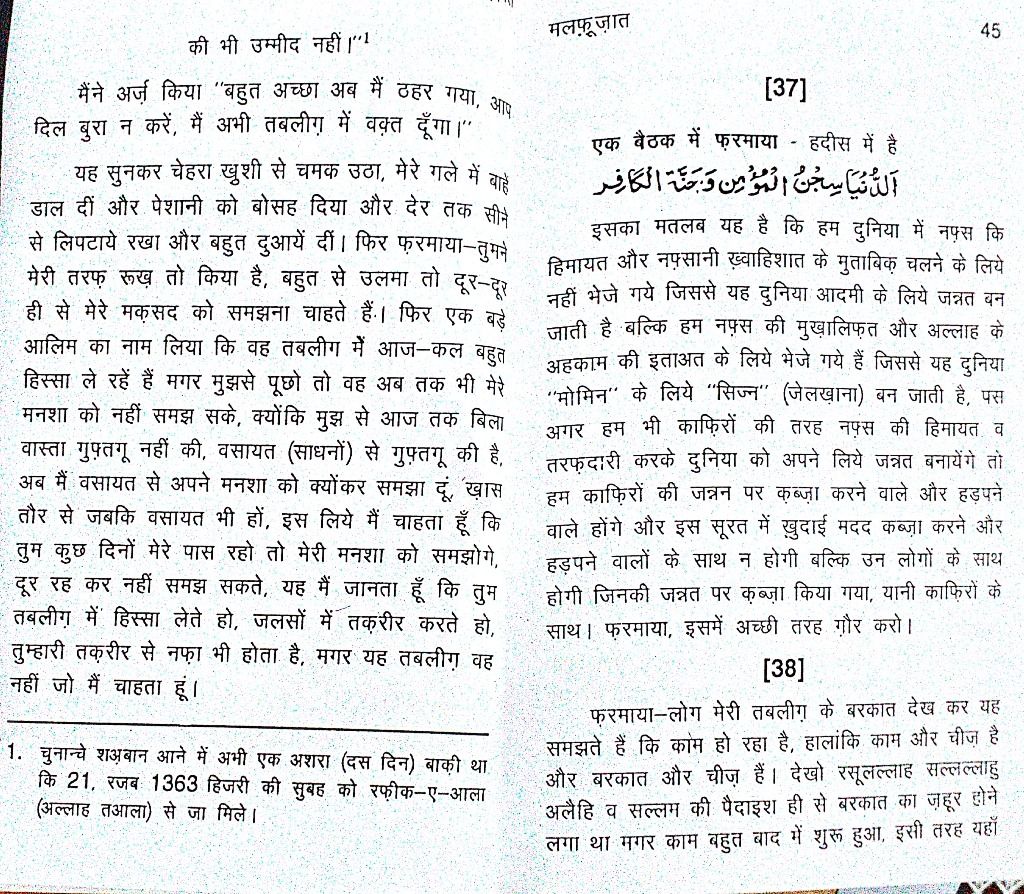 की भी उम्मीद नहीं।"1
मैंने अर्ज़ किया "बहुत अच्छा अब मैं ठहर गया, आप
दिल बुरा न करें, मैं अभी तबलीग़ में वक़्त दूँगा।"
यह सुनकर चेहरा खुशी से चमक उठा, मेरे गले में बाहें
डाल दीं और पेशानी को बोसह दिया और देर तक सीने
से लिपटाये रखा और बहुत दुआयें दीं। फिर फ़रमाया–तुमने
मेरी तरफ़ रूख़ तो किया है, बहुत से उलमा तो दूर–दूर
ही से मेरे मक़सद को समझना चाहते हैं। फिर एक बड़े
आलिम का नाम लिया कि वह तबलीग़ में आज–कल बहुत
हिस्सा ले रहें हैं मगर मुझसे पूछो तो वह अब तक भी मेरे
मनशा को नहीं समझ सके, क्योंकि मुझ से आज तक बिला
वास्ता गुफ़्तगू नहीं की, वसायत (साधनों) से गुफ़्तगू की है,
अब मैं वसायत से अपने मनशा को क्योंकर समझा दूं, ख़ास
तौर से जबकि वसायत भी हों, इस लिये मैं चाहता हूँ कि
तुम कुछ दिनों मेरे पास रहो तो मेरी मनशा को समझोगे,
दूर रह कर नहीं समझ सकते, यह मैं जानता हूँ कि तुम
तबलीग़ में हिस्सा लेते हो, जलसों में तक़रीर करते हो,
तुम्हारी तक़रीर से नफ़ा भी होता है, मगर यह तबलीग़ वह
नहीं जो मैं चाहता हूं।
1. चुनान्चे शअ़बान आने में अभी एक अशरा (दस दिन) बाकी था
कि 21, रजब 1363 हिजरी की सुबह को रफ़ीक–ए–आला
(अल्लाह तआला) से जा मिले।
मलफ़ूज़ात 45
[37]
एक बैठक में फ़रमाया - हदीस में है
اَلدُّنْيَا سِجْنُ الْمُؤْمِنِ وَجَنَّةُ الْكَافِرِ
इसका मतलब यह है कि हम दुनिया में नफ़्स कि
हिमायत और नफ़्सानी ख़्वाहिशात के मुताबिक़ चलने के लिये
नहीं भेजे गये जिससे यह दुनिया आदमी के लिये जन्नत बन
जाती है बल्कि हम नफ़्स की मुख़ालिफ़त और अल्लाह के
अहकाम की इताअत के लिये भेजे गये हैं जिससे यह दुनिया
"मोमिन" के लिये "सिज्न" (जेलखाना) बन जाती है, पस
अगर हम भी काफ़िरों की तरह नफ़्स की हिमायत व
तरफ़दारी करके दुनिया को अपने लिये जन्नत बनायेंगे तो
हम काफ़िरों की जन्नन पर क़ब्ज़ा करने वाले और हड़पने
वाले होंगे और इस सूरत में ख़ुदाई मदद कब्ज़ा करने और
हड़पने वालों के साथ न होगी बल्कि उन लोगों के साथ
होगी जिनकी जन्नत पर क़ब्ज़ा किया गया, यानी काफ़िरों के
साथ। फ़रमाया, इसमें अच्छी तरह ग़ौर करो।
[38]
फ़रमाया–लोग मेरी तबलीग़ के बरकात देख कर यह
समझते हैं कि काम हो रहा है, हालांकि काम और चीज़ है
और बरकात और चीज़ हैं। देखो रसूलल्लाह सल्लल्लाहु
अलैहि व सल्लम की पैदाइश ही से बरकात का ज़हूर होने
लगा था मगर काम बहुत बाद में शुरू हुआ, इसी तरह यहाँ